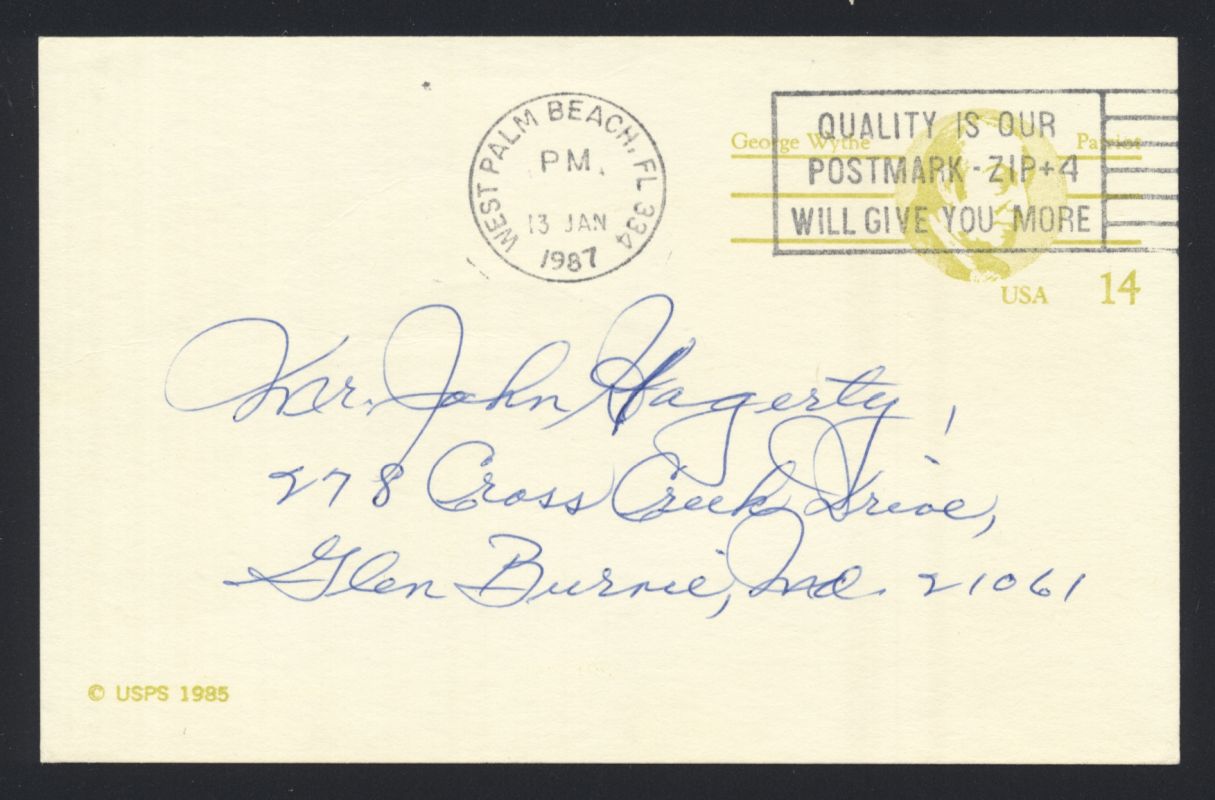 WEST PALM BEACH, FL 334
PM
13 JAN
1987
George Wythe Patriot
QUALITY IS OUR
POSTMARK - ZIP+4
WILL GIVE YOU MORE
USA 14
Mr. John Hagerty,
278 Cross Creek Drive,
Glen Burnie, Md. 21061
© USPS 1985